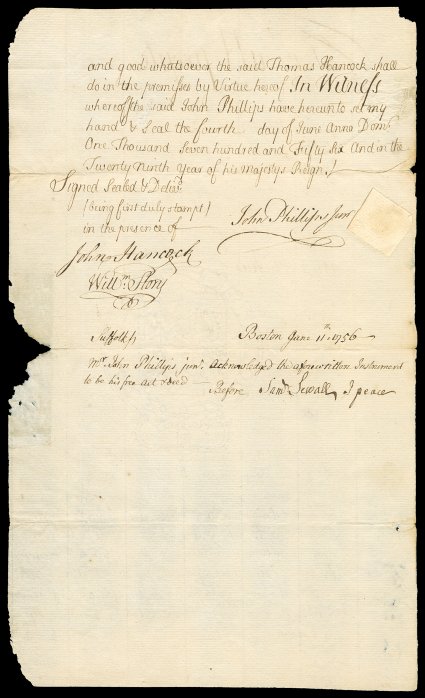 and good whatsoever the said Thomas Hancock shall
do in the premises by Virtue hereof In Witness
whereof the said John Phillips have hereunto set my
hand & Seal the fourth day of June Anno Dom
One Thousand Seven hundred and Fifty Six And in the
Twenty Ninth Year of his majestys Reign
Signed Sealed & Deliv
(being first duly stampt)
in the presence of
John Phillips Junr
John Hancock
Willm Story
Suffolk ss
Boston June 11th 1756
Mr. John Phillips junr. acknowledged the aforewritten Instrument
to be his free Act & deed
Before Saml Sewall J peace